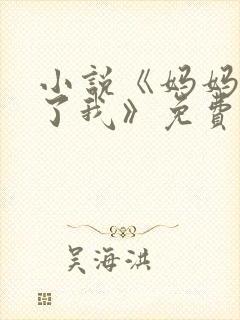 小说《妈妈
了我》免费
吴海洪